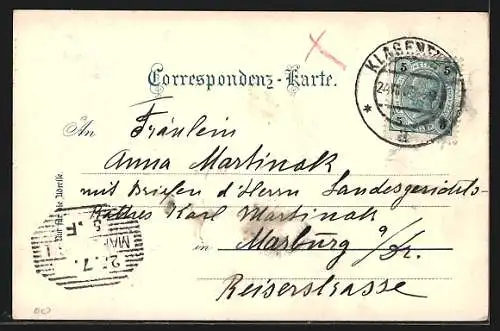 Correspondenz-Karte.
KLAGENF
5 5
5 5
An Fräulein
Anna Martinak
mit Briefen d'Herrn Landesgerichts-
Rathes Karl Martinak
in Marburg a/Dr.
Reiserstrasse
Nur für die Adresse.
MAR
5. F
27. 7.